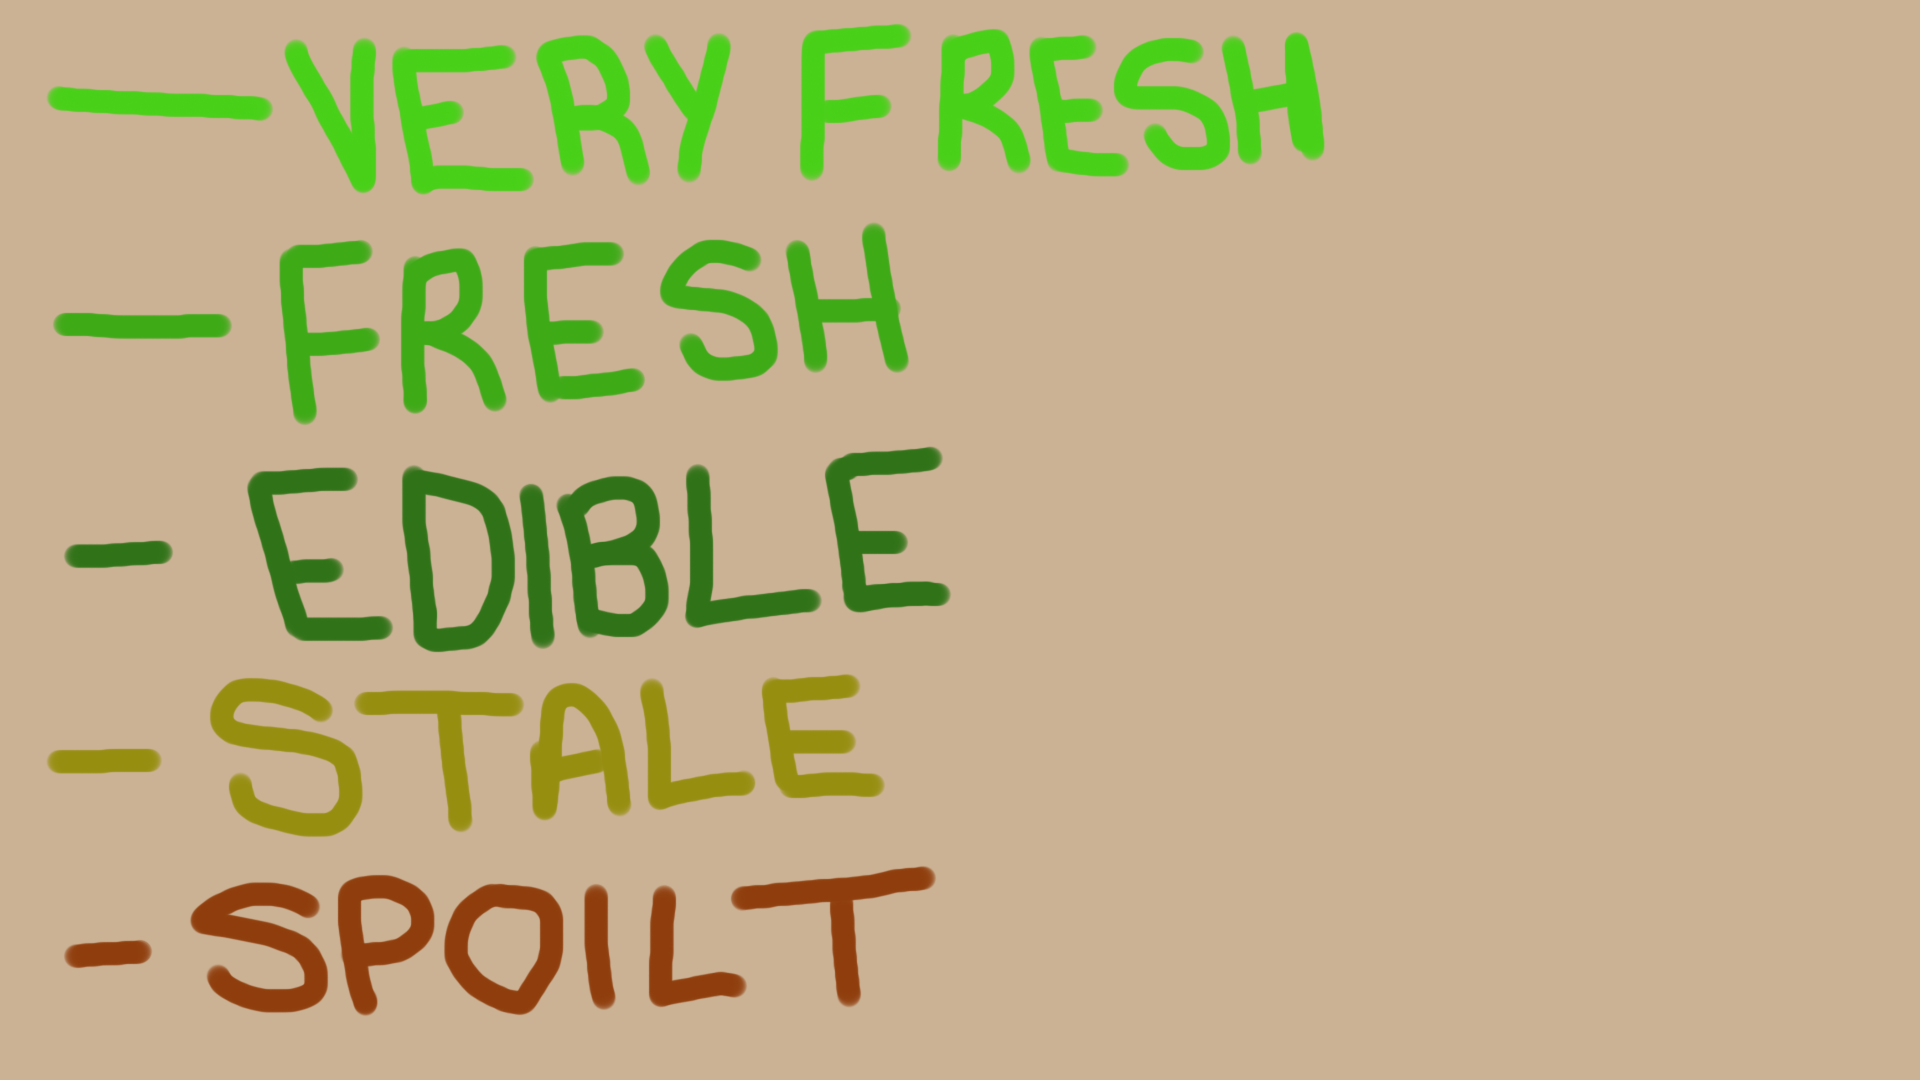 - VERY FRESH
- FRESH
- EDIBLE
- STALE
- SPOILT